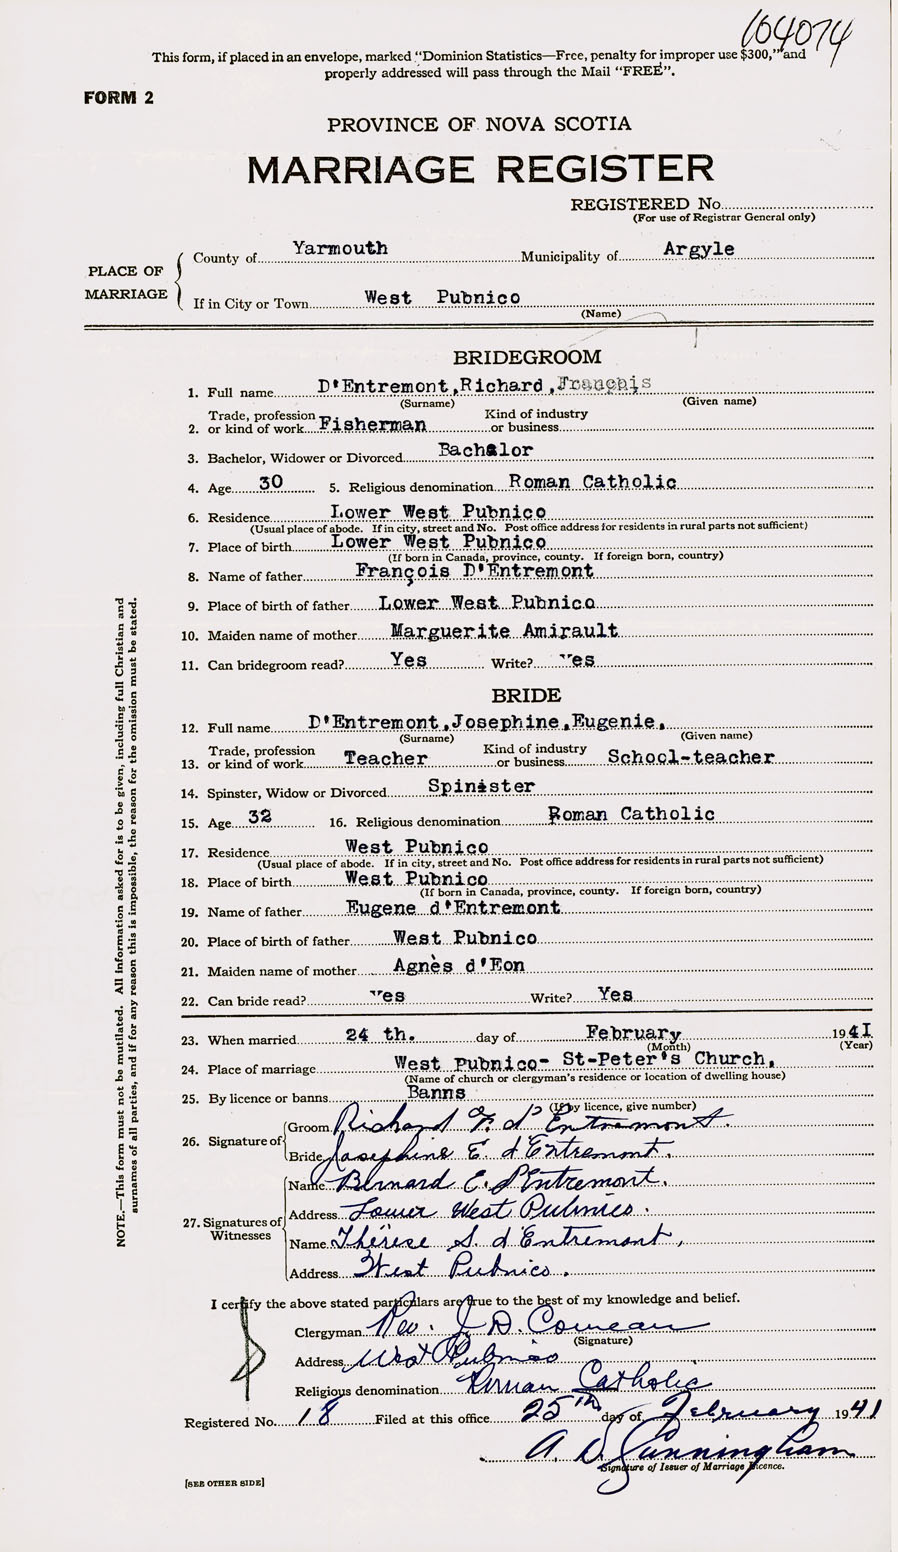 104074
This form, if placed in an envelope, marked "Dominion Statistics—Free, penalty for improper use $300," and
properly addressed will pass through the Mail "FREE".
FORM 2
PROVINCE OF NOVA SCOTIA
MARRIAGE REGISTER
REGISTERED No.
(For use of Registrar General only)
PLACE OF MARRIAGE
County of Yarmouth Municipality of Argyle
If in City or Town West Pubnico
(Name)
BRIDEGROOM
1. Full name D'Entremont,Richard,François
(Surname) (Given name)
2. Trade, profession or kind of work Fisherman Kind of industry or business
3. Bachelor, Widower or Divorced Bachelor
4. Age 30 5. Religious denomination Roman Catholic
6. Residence Lower West Pubnico
(Usual place of abode. If in city, street and No. Post office address for residents in rural parts not sufficient)
7. Place of birth Lower West Pubnico
(If born in Canada, province, county. If foreign born, country)
8. Name of father François D'Entremont
9. Place of birth of father Lower West Pubnico
10. Maiden name of mother Marguerite Amirault
11. Can bridegroom read? Yes Write? Yes
BRIDE
12. Full name D'Entremont,Josephine,Eugenie,
(Surname) (Given name)
13. Trade, profession or kind of work Teacher Kind of industry or business School-teacher
14. Spinster, Widow or Divorced Spinster
15. Age 32 16. Religious denomination Roman Catholic
17. Residence West Pubnico
(Usual place of abode. If in city, street and No. Post office address for residents in rural parts not sufficient)
18. Place of birth West Pubnico
(If born in Canada, province, county. If foreign born, country)
19. Name of father Eugene d'Entremont
20. Place of birth of father West Pubnico
21. Maiden name of mother Agnès d'Eon
22. Can bride read? Yes Write? Yes
23. When married 24 th. day of February 1941
(Month) (Year)
24. Place of marriage West Pubnico- St-Peter's Church.
(Name of church or clergyman's residence or location of dwelling house)
25. By licence or banns Banns
(If by licence, give number)
26. Signature of Groom Richard F. d'Entremont.
Bride Josephine E. d'Entremont.
27. Signatures of Witnesses
Name Bernard E. d'Entremont.
Address Lower West Pubnico.
Name Thérèse S. d'Entremont,
Address West Pubnico.
I certify the above stated particulars are true to the best of my knowledge and belief.
Clergyman Rev. J. D. Comeau
(Signature)
Address West Pubnico
Religious denomination Roman Catholic
Registered No. 18 Filed at this office 25th day of February 1941
A. D. Cunningham
Signature of Issuer of Marriage Licence.
[SEE OTHER SIDE]
NOTE.—This form must not be mutilated. All information asked for is to be given, including full Christian and
surnames of all parties, and if for any reason this is impossible, the reason for the omission must be stated.